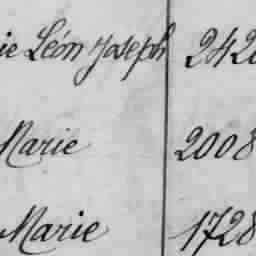 ie Léon Joseph 242
Marie 2008
Marie 1728